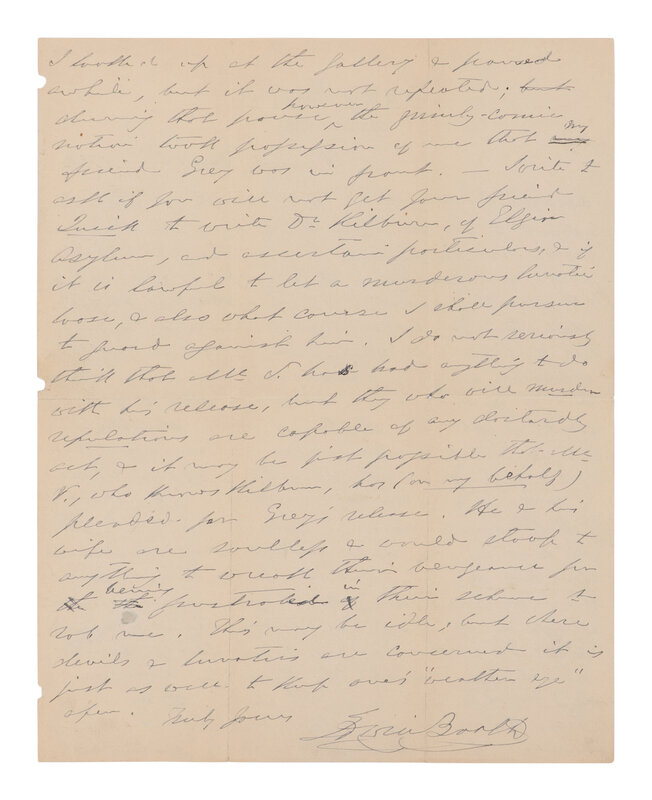 I looked up at the gallery & paused
awhile, but it was not repeated; but
during that pause, however, the grimly-comic
notion took possession of me that my my
friend Grey was in front. — I write to
ask if you will not get your friend
Quick to write Dr. Kilburn, of Elgin
Asylum, and ascertain particulars, & if
it is lawful to let a murderous lunatic
loose, & also what course I shall pursue
to guard against him. I do not seriously
think that Mc has had anything to do
with his release, but they who will murder
reputations are capable of any dastardly
act, & it may be just possible that Mc
V., who knows Kilburn, has (on my behalf)
pleaded for Grey's release. He & his
wife are soulless & would stoop to
anything to wreak their vengeance for
being frustrated in their scheme to
rob me. This may be idle, but where
devils & lunatics are concerned it is
just as well to keep one's "weather eye"
open. Truly Yours
Edwin Booth